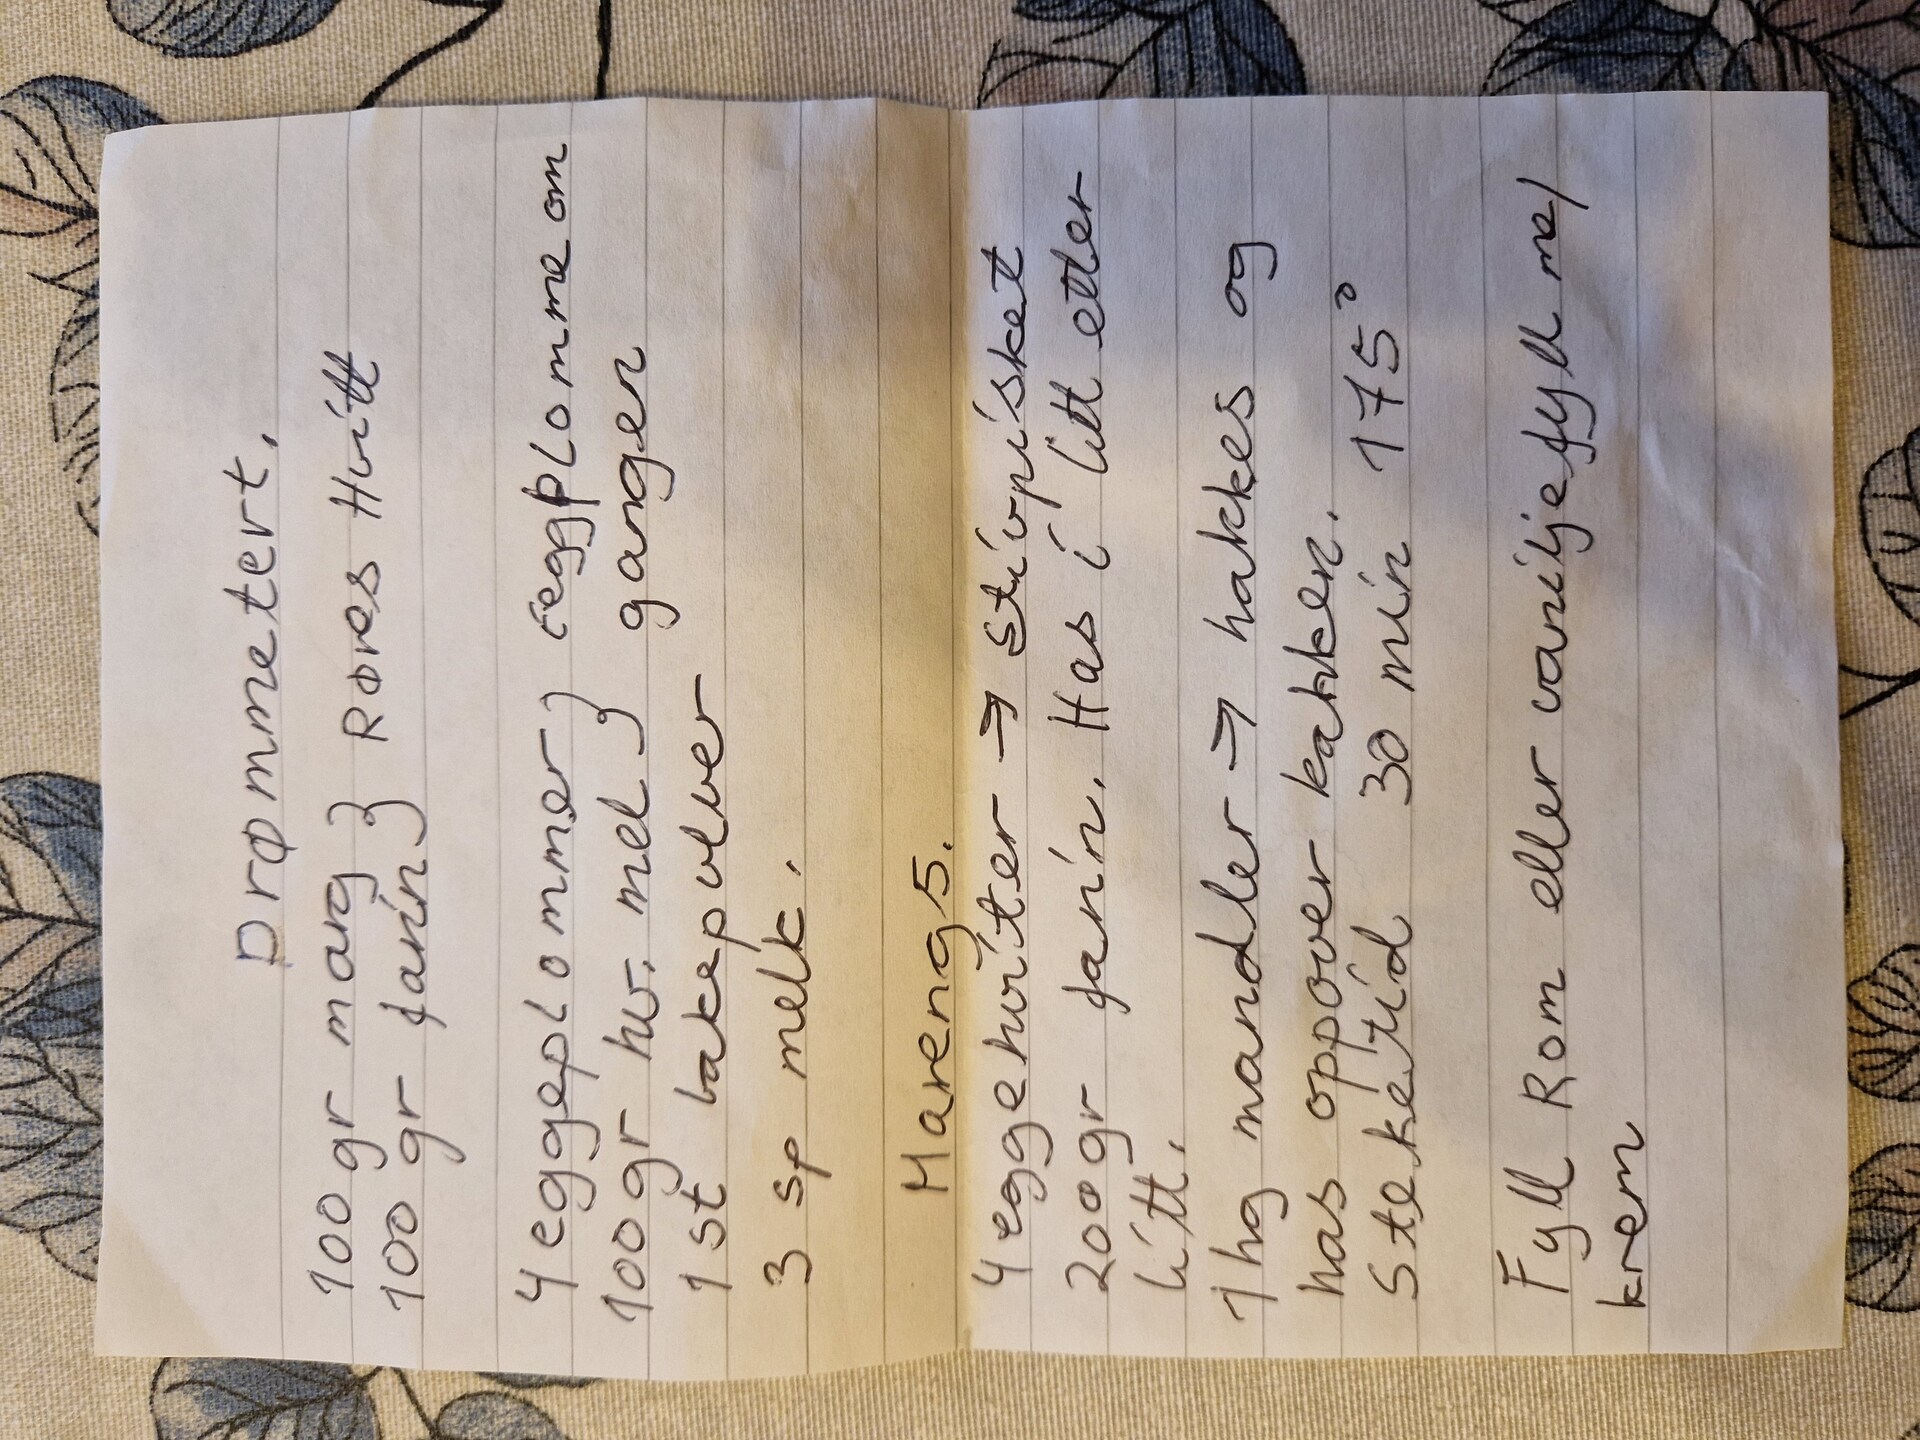 Drømmetert.
100 gr marg } Røres Hvitt
100 gr farin
4 eggeplommer } 1 eggplomme om
100 gr hv. mel gangen
1 st bakepulver
3 sp melk.
Marengs.
4 eggehviter → stivpisket
200 gr farin. Has i litt etter
litt.
1 hg mandler → hakkes og
has oppover kakken.
Steketid 30 min 175°
Fyll Rom eller vaniljefyll me/
krem